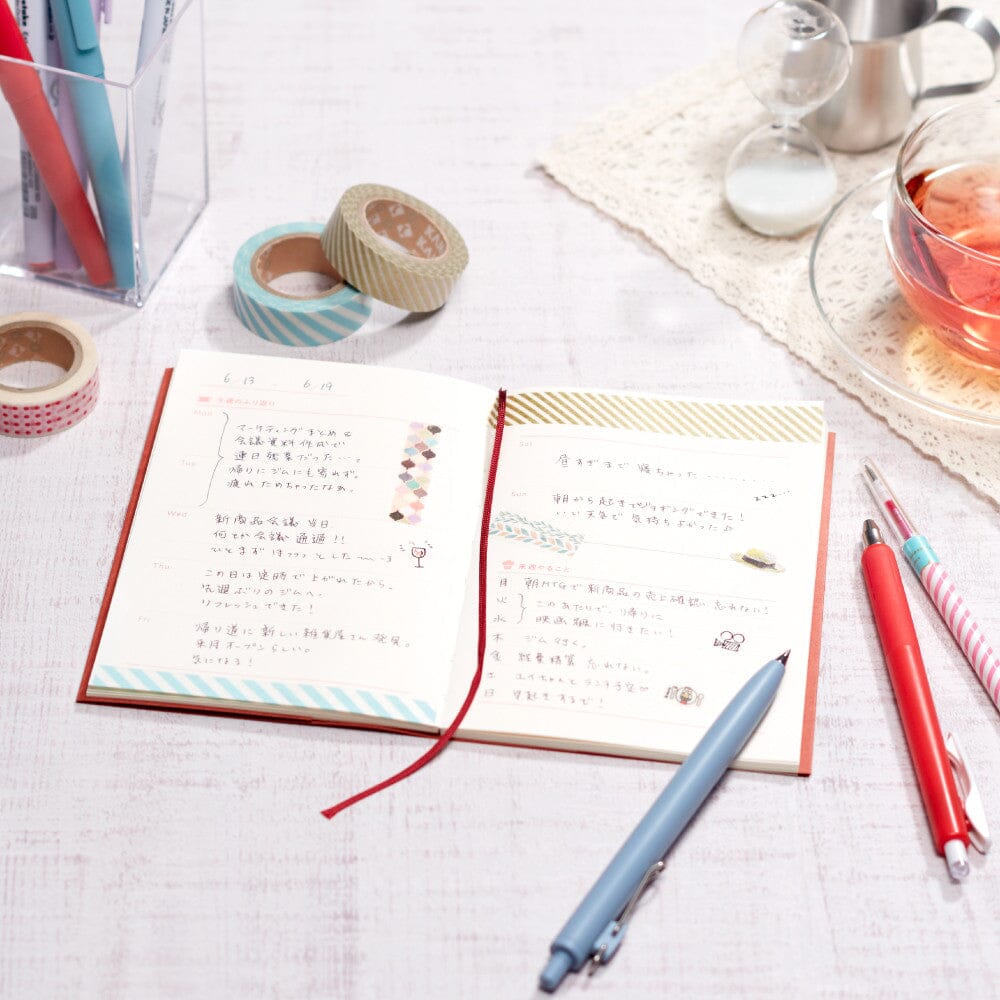 6/13 - 6/19
今週のふり返り
Mon
マーケティングまとめや
会議資料作成で
連日残業だった…。
帰りにジムにも寄れず。
疲れためちゃったなぁ。
Tue
Wed
新商品会議 当日
何とか会議通過!!
ひとまずほっとした
Thu
この日は定時で上がれたから、
先週ぶりのジムへ。
リフレッシュできた!
Fri
帰り道に新しい雑貨屋さん発見。
来月オープンらしい。
気になる!
Sat
昼すぎまで寝ちゃった
zzz…
Sun
朝から起きてジョギングできた!
いい天気で気持ちよかった♪
来週やること
月 朝MTGで新商品の売上確認 忘れない!
火 このあたりで、帰りに
水 映画観に行きたい!
木 ジム行く。
金 経費精算 忘れない。
土 ユイちゃんとランチ予定♡
日 早起きする!